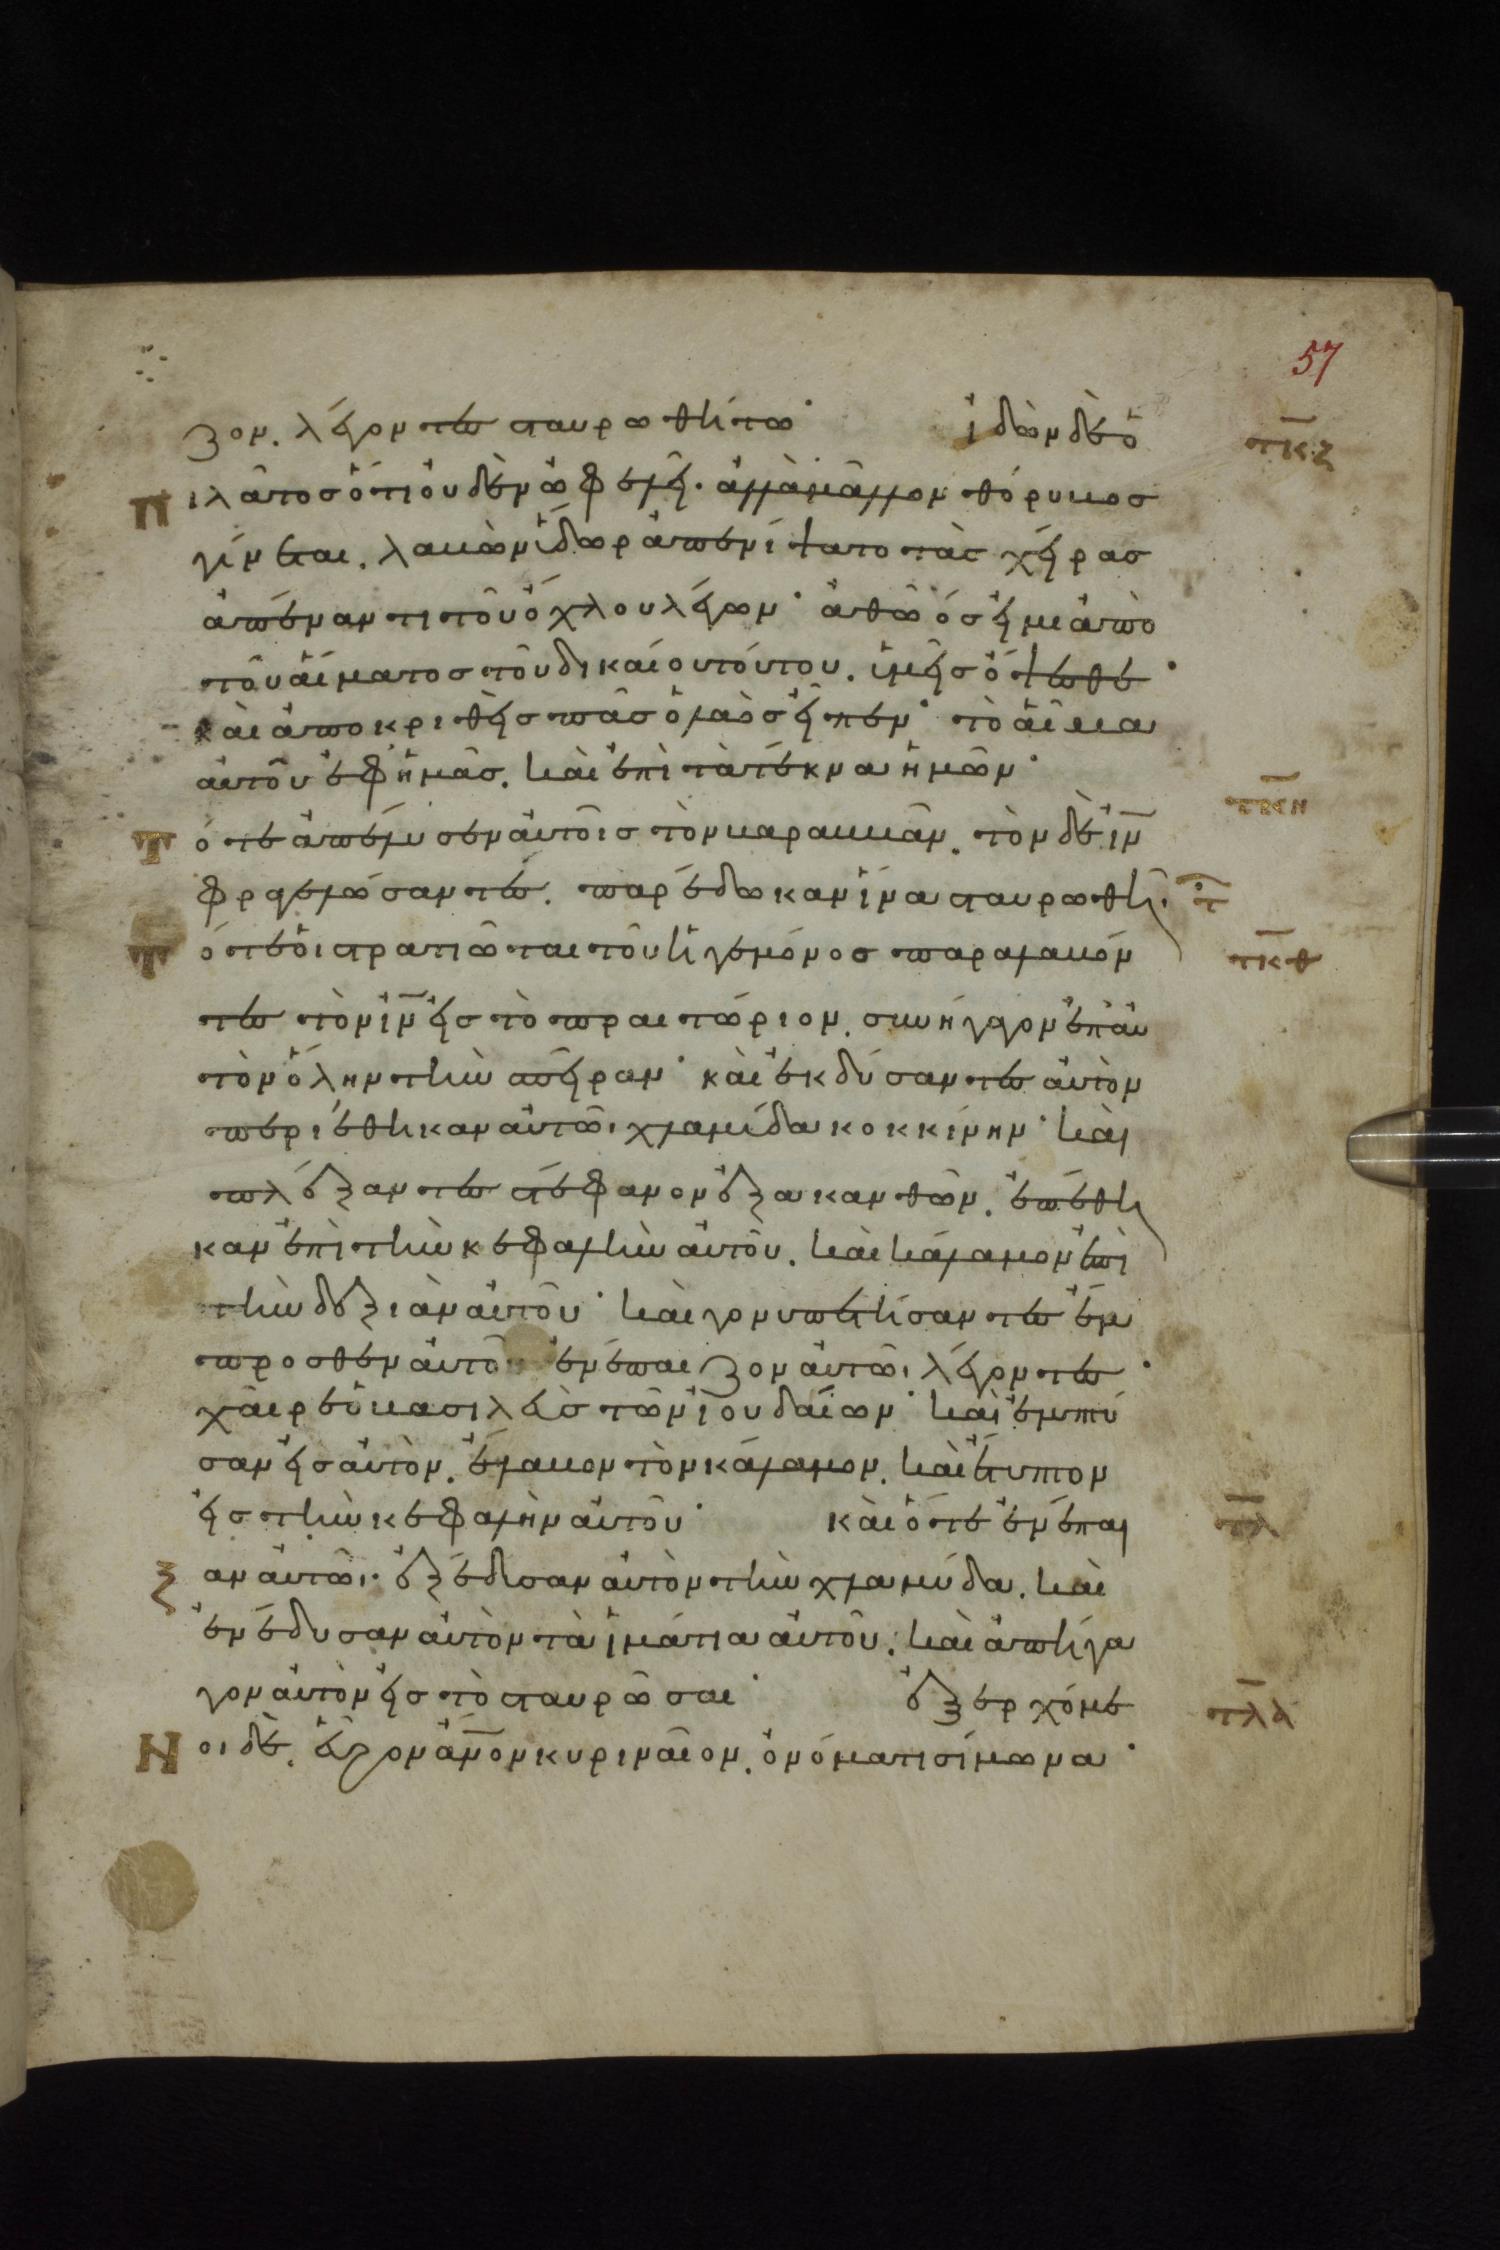 57
ζον. λέγοντες σταυρωθήτω· ἰδὼν δὲ ὁ τκζ
Πιλάτος ὅτι οὐδὲν ὠφελεῖ. ἀλλὰ μᾶλλον θόρυβος
γίνεται. λαβὼν ὕδωρ ἀπενίψατο τὰς χεῖρας
ἀπέναντι τοῦ ὄχλου λέγων· ἀθῶός εἰμι ἀπὸ
τοῦ αἵματος τοῦ δικαίου τούτου. ὑμεῖς ὄψεσθε·
καὶ ἀποκριθεὶς πᾶς ὁ λαὸς εἶπεν· τὸ αἷμα
αὐτοῦ ἐφ ἡμᾶς. καὶ ἐπὶ τὰ τέκνα ἡμῶν·
Τότε ἀπέλυσεν αὐτοῖς τὸν βαραββᾶν. τὸν δὲ ιν τκη
φραγελώσαντες. παρέδωκαν ἵνα σταυρωθῆ.
Τότε οἱ στρατιῶται τοῦ ἡγεμόνος παραλαβόν τκθ
τες τὸν ιν εἰς τὸ πραιτώριον. συνήγαγον ἐπ αὐ
τὸν ὅλην τὴν σπεῖραν· καὶ ἐκδύσαντες αὐτὸν
περιέθηκαν αὐτῶι χλαμίδα κοκκίνην· καὶ
πλέξαντες στέφανον ἐξ ακανθῶν. ἐπέθη
καν ἐπὶ τὴν κεφαλὴν αὐτοῦ. καὶ κάλαμον ἐπὶ
τὴν δεξιὰν αὐτοῦ· καὶ γονυπετήσαντες ἔμ
προσθεν αὐτοῦ ἐνέπαιζον αὐτῶι λέγοντες·
χαῖρε ὁ βασιλεὺς τῶν ἰουδαίων· καὶ ἐμπτύ
σαν εἰς αὐτὸν. ἔλαβον τὸν κάλαμον. καὶ ἔτυπτον
εἰς τὴν κεφαλὴν αὐτοῦ· καὶ ὅτε ἐνέπαι τλ
ξαν αὐτῶι. ἐξέδησαν αὐτὸν τὴν χλαμύδα. καὶ
ἐνέδυσαν αὐτὸν τὰ ἱμάτια αὐτοῦ. καὶ ἀπήγα
γον αὐτὸν εἰς τὸ σταυρῶσαι· ἐξερχόμε τλα
Νοι δὲ. εὗρον ανον κυριναῖον. ὀνόματι σίμωνα·